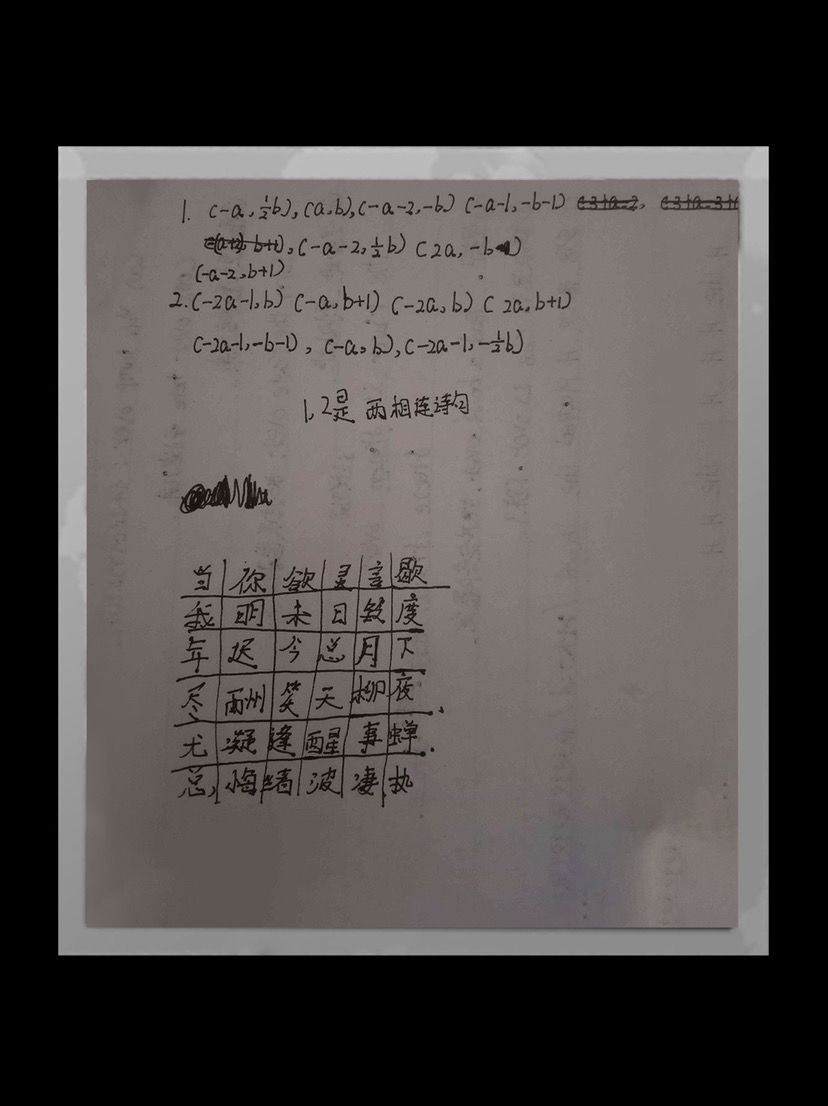 1. (-a, ½b), (a,b), (-a-2,-b) (-a-1,-b-1)
, (-a-2, ½b) (2a, -b)
(-a-2, b+1)
2. (-2a-1, b) (-a, b+1) (-2a, b) (2a, b+1)
(-2a-1, -b-1), (-a, b), (-2a-1, -½b)
1, 2是 两相连诗句
当 你 欲 灵 言 歇
我 明 未 日 敛 度
年 迟 今 总 月 下
尽 酬 笑 天 柳 夜
尤 凝 逢 醒 事 蝉
总, 悔 绪 波 凄 执